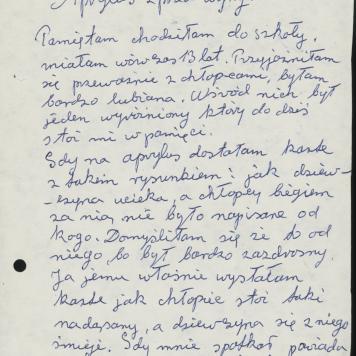 Pamiętam chodziłam do szkoły,
miałam wówczas 13 lat. Przyjaźniłam
się przeważnie z chłopcami, byłam
bardzo lubiana. Wśród nich był
jeden wyróżniony który do dziś
stoi mi w pamięci.
Gdy na aprylus dostałam kartkę
z takim rysunkiem: jak dziew-
-czyna ucieka, a chłopcy biegiem
za nią, nie było napisane od
kogo. Domyśliłam się że to od
niego, bo był bardzo zazdrosny.
Ja jemu właśnie wysłałam
kartkę jak chłopiec stoi taki
nadąsany, a dziewczyna się z niego
śmieje. Gdy mnie spotkał powiada